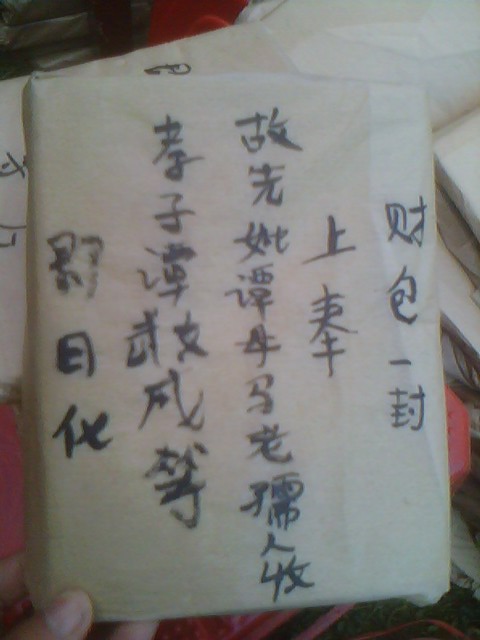 财包一封
上奉
故先妣谭母马老孺人收
孝子谭武文成等
即日化